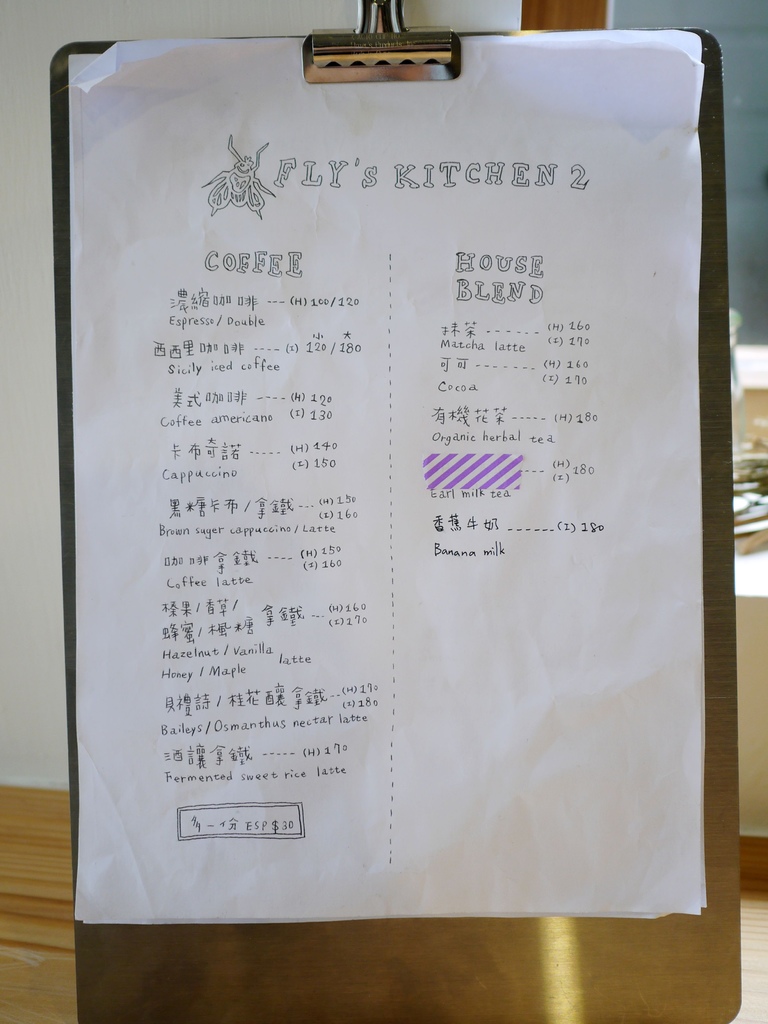 FLY'S KITCHEN 2
COFFEE
濃縮咖啡 --- (H) 100/120
Espresso/Double
小 大
西西里咖啡 ---- (I) 120/180
Sicily iced coffee
美式咖啡 --- (H) 120
Coffee americano (I) 130
卡布奇諾 ----- (H) 140
Cappuccino (I) 150
黑糖卡布/拿鐵 --- (H) 150
(I) 160
Brown suger cappuccino/Latte
咖啡拿鐵 ---- (H) 150
(I) 160
Coffee latte
榛果/香草/
蜂蜜/楓糖 拿鐵 --- (H) 160
(I) 170
Hazelnut/Vanilla
Honey/Maple latte
貝禮詩/桂花釀拿鐵 -- (H) 170
(I) 180
Baileys/Osmanthus nectar latte
酒讓拿鐵 ----- (H) 170
Fermented sweet rice latte
一份 ESP $30
HOUSE
BLEND
抹茶 ------ (H) 160
Matcha latte (I) 170
可可 ------- (H) 160
(I) 170
Cocoa
有機花茶 ----- (H) 180
Organic herbal tea
---- (H)
(I) 180
Earl milk tea
香蕉牛奶 ------ (I) 180
Banana milk